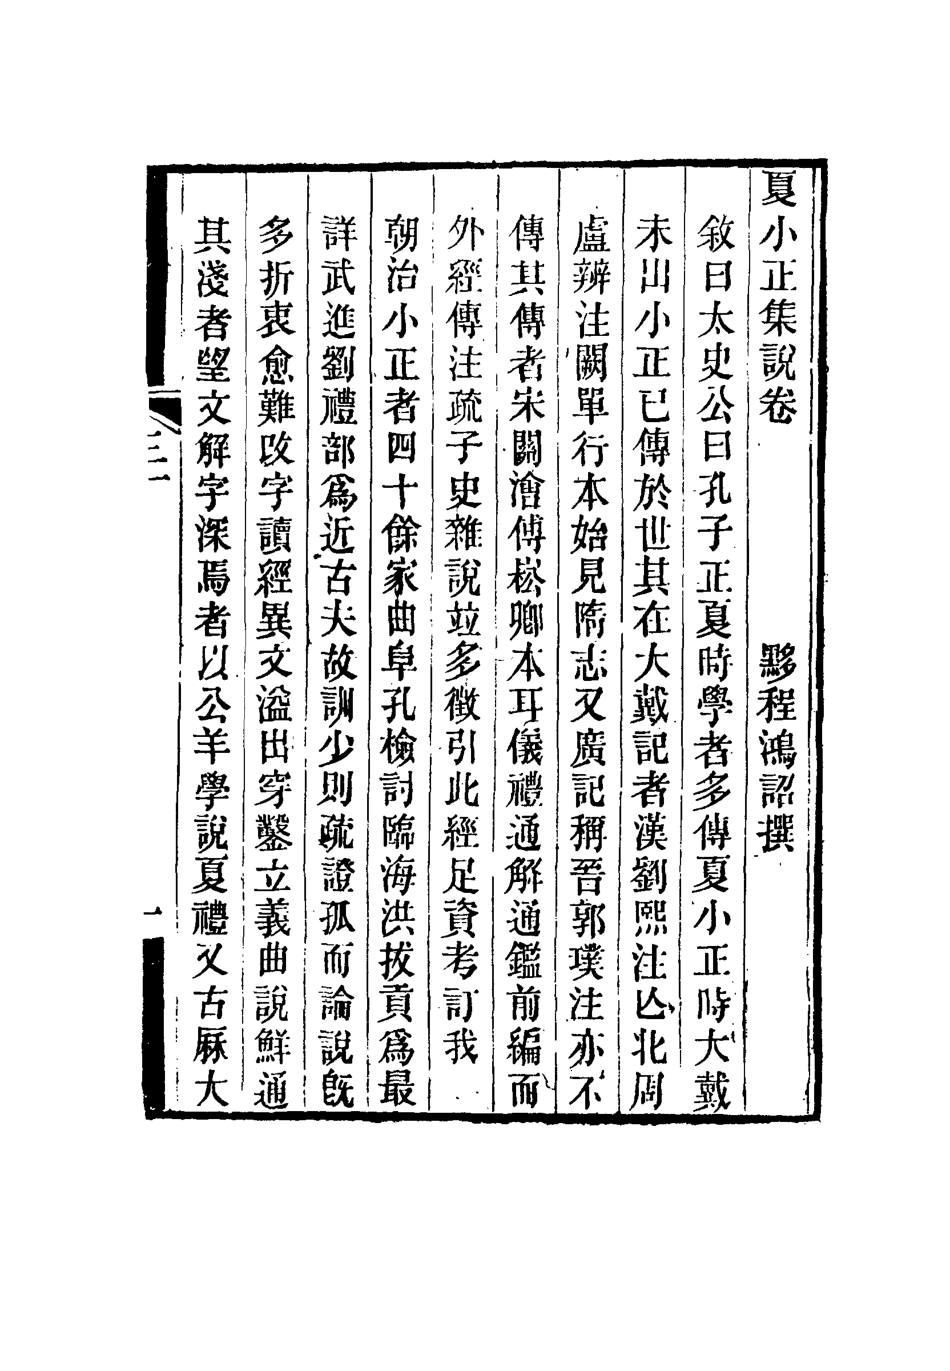 夏小正集說卷　　　　　黟程鴻詔撰
敘曰太史公曰孔子正夏時學者多傳夏小正時大戴
未出小正已傳於世其在大戴記者漢劉熙注亾北周
盧辨注闕單行本始見隋志又廣記稱吾郭璞注亦不
傳其傳者宋關澮傅崧卿本耳儀禮通解通鑑前編而
外經傳注疏子史雜說竝多徵引此經足資考訂我
朝治小正者四十餘家曲阜孔檢討臨海洪拔貢爲最
詳武進劉禮部爲近古夫故訓少則疏證孤而論說旣
多折衷愈難改字讀經異文溢出穿鑿立義曲說鮮通
其淺者望文解字深焉者以公羊學說夏禮又古厤大
一